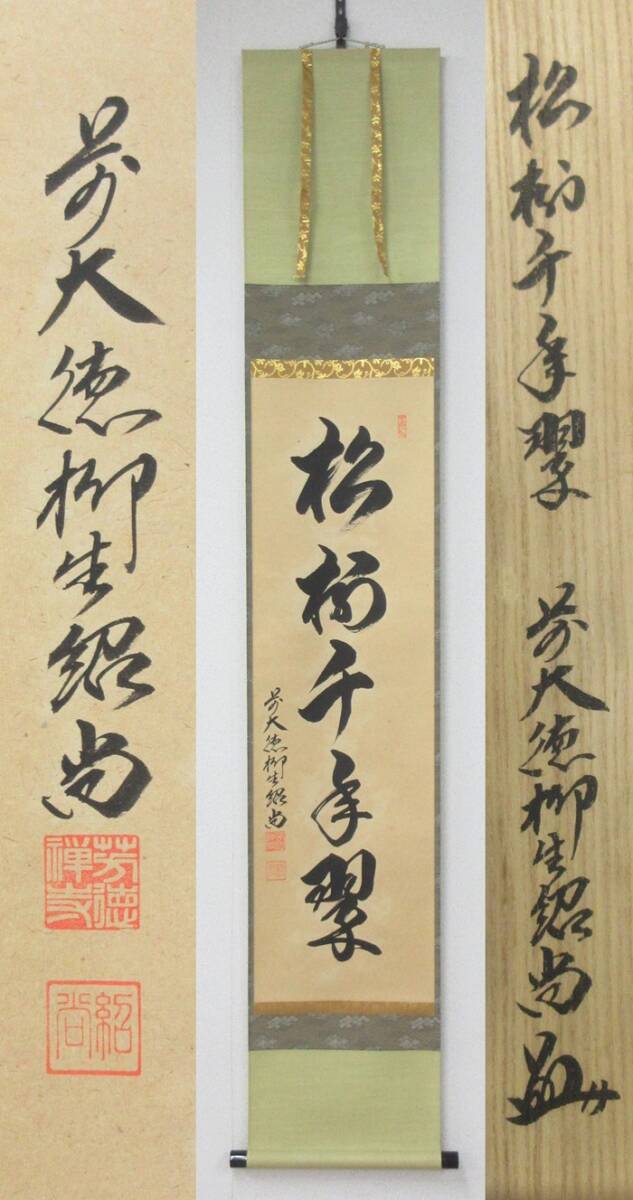 前大徳柳生紹尚
芳徳禅寺
紹尚
松樹千年翠
前大徳柳生紹尚
松樹千年翠
前大徳柳生紹尚